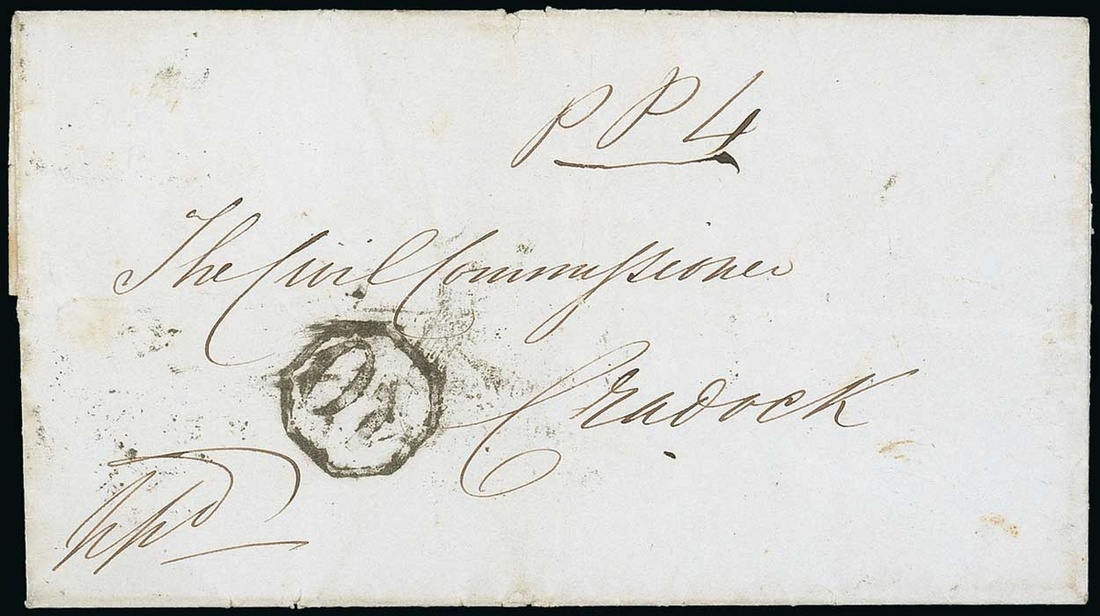 P P 4
The Civil Commissioner
Cradock
ppd